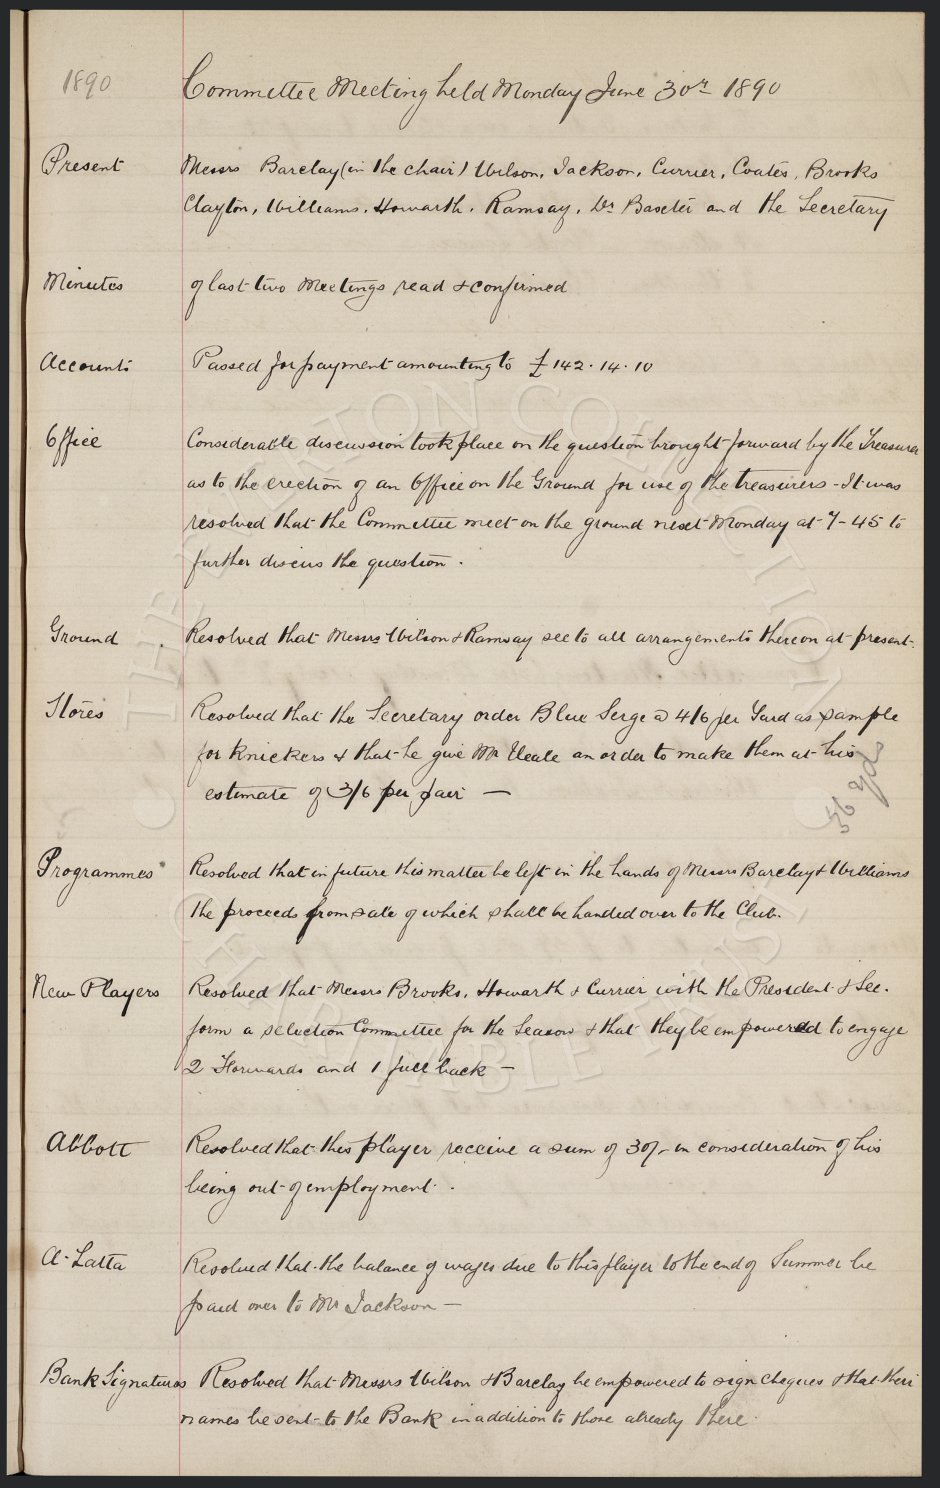 1890
Committee Meeting held Monday June 30th 1890
Present Messrs Barclay (in the chair) Wilson, Jackson, Currier, Coates, Brooks
Clayton, Williams, Howarth, Ramsay, Dr Baxter and the Secretary
Minutes of last two Meetings read & confirmed
Accounts Passed for payment amounting to £142.14.10
Office Considerable discussion took place on the question brought forward by the Treasurer
as to the erection of an Office on the Ground for use of the treasurers - It was
resolved that the Committee meet on the ground next Monday at 7-45 to
further discuss the question.
Ground Resolved that Messrs Wilson & Ramsay see to all arrangements thereon at present.
Stores Resolved that the Secretary order Blue Serge @ 4/6 per Yard as sample
for Knickers & that he give Mr an order to make them at his
estimate of 3/6 per pair —
56 yds
Programmes Resolved that in future this matter be left in the hands of Messrs Barclay & Williams
the proceeds from sale of which shall be handed over to the Club.
New Players Resolved that Messrs Brooks, Howarth & Currier with the President & Sec.
form a selection Committee for the Season & that they be empowered to engage
2 Forwards and 1 full back —
Abbott Resolved that this player receive a sum of 30/- in consideration of his
being out of employment.
A. Latta Resolved that the balance of wages due to this player to the end of Summer be
paid over to Mr Jackson —
Bank Signatures Resolved that Messrs Wilson & Barclay be empowered to sign cheques & that their
names be sent to the Bank in addition to those already there.
THE EVERTON COLLECTION
CHARITABLE TRUST